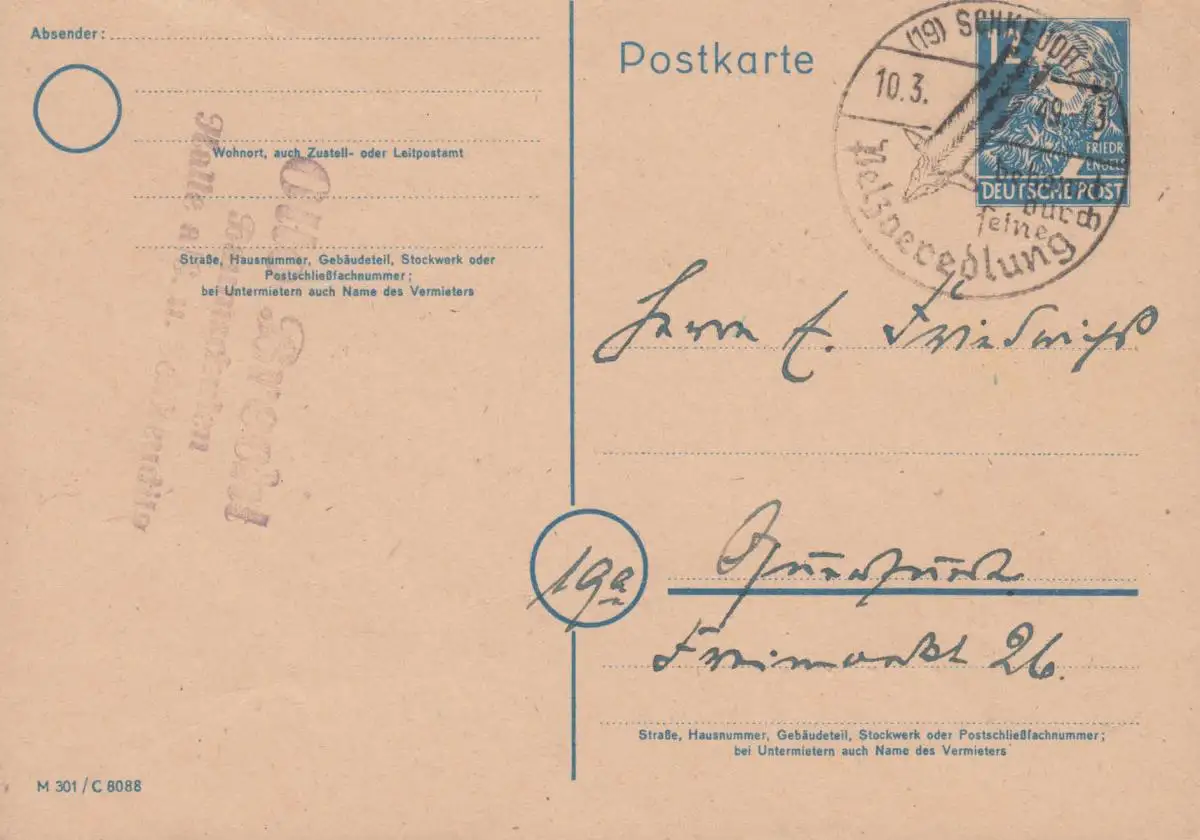 Absender:
Wohnort, auch Zustell- oder Leitpostamt
Straße, Hausnummer, Gebäudeteil, Stockwerk oder
Postschließfachnummer;
bei Untermietern auch Name des Vermieters
Halle a. S. u.
M 301 / C 8088
Postkarte
12
FRIEDR.
ENGELS
DEUTSCHE POST
(19) SCHKEUDITZ
10.3. 49. 13
bekannt
durch
seine
Pelzveredlung
Herrn E. Friedrich
19a
Querfurt
Freimarkt 26.
Straße, Hausnummer, Gebäudeteil, Stockwerk oder Postschließfachnummer;
bei Untermietern auch Name des Vermieters